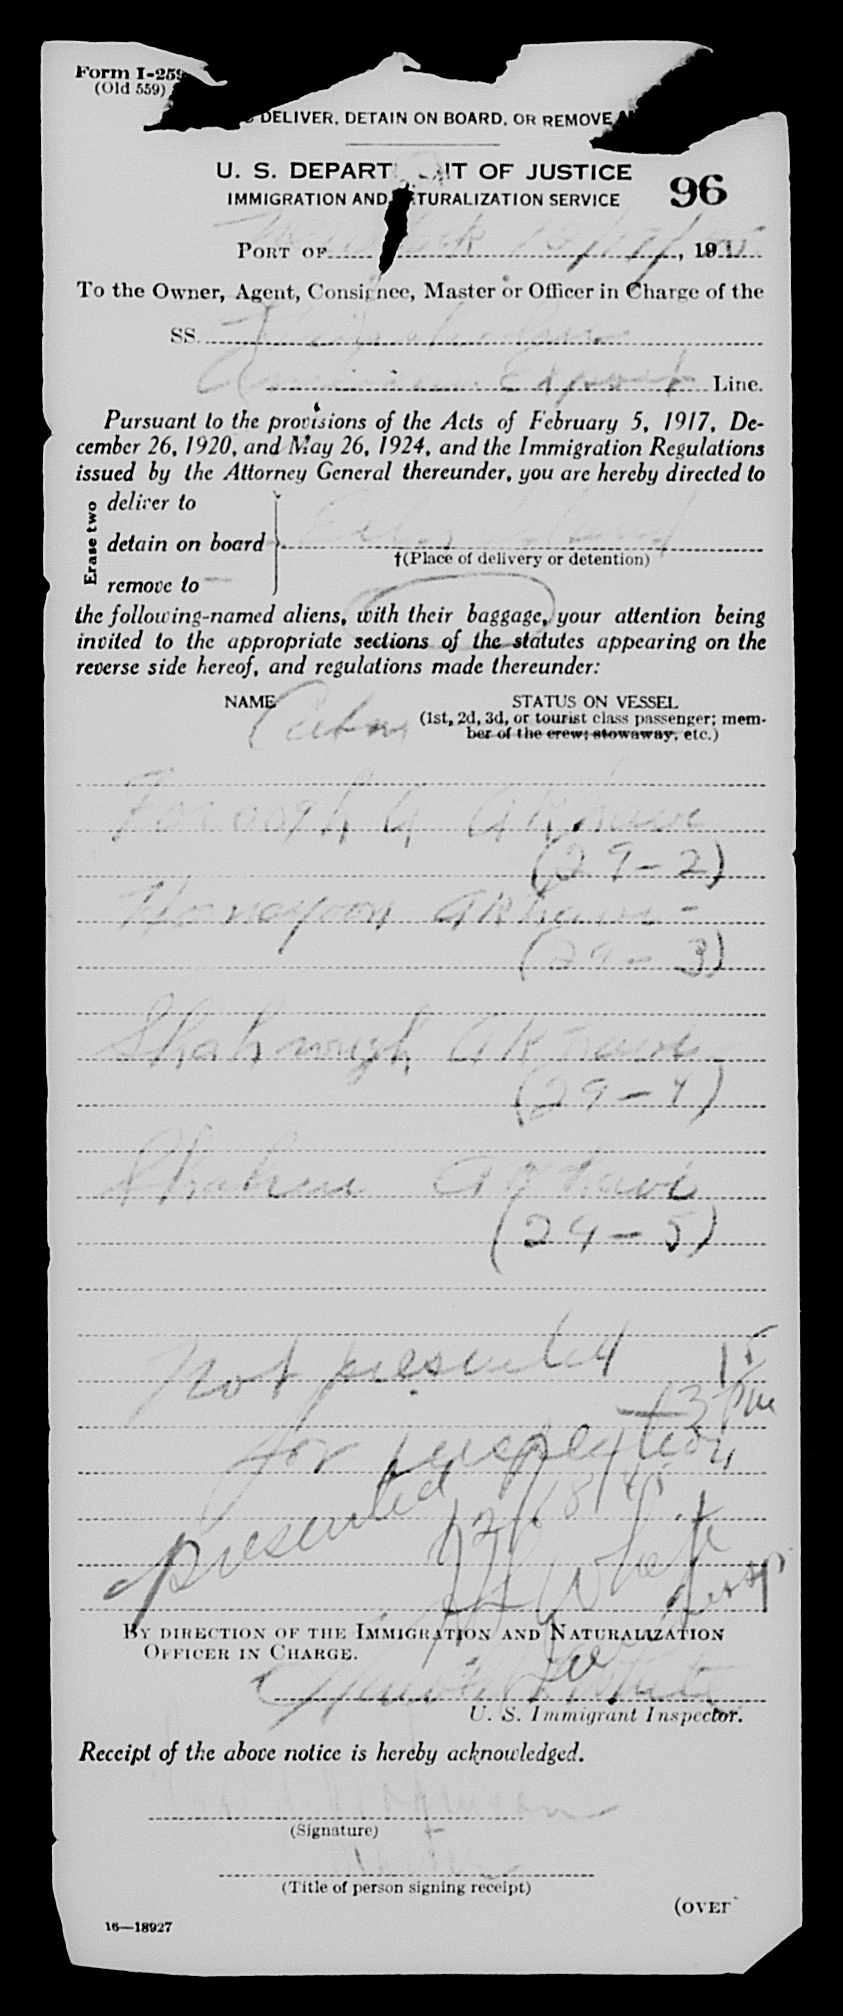 Form I-259
(Old 559)
DELIVER, DETAIN ON BOARD, OR REMOVE
U. S. DEPART NT OF JUSTICE
IMMIGRATION AND TURALIZATION SERVICE
96
PORT OF 12/17/ , 19
To the Owner, Agent, Consignee, Master or Officer in Charge of the
SS.
American Export Line.
Pursuant to the provisions of the Acts of February 5, 1917, De-
cember 26, 1920, and May 26, 1924, and the Immigration Regulations
issued by the Attorney General thereunder, you are hereby directed to
Erase two
deliver to
detain on board
†(Place of delivery or detention)
remove to
the following-named aliens, with their baggage, your attention being
invited to the appropriate sections of the statutes appearing on the
reverse side hereof, and regulations made thereunder:
NAME STATUS ON VESSEL
(1st, 2d, 3d, or tourist class passenger; mem-
ber of the crew; stowaway, etc.)
Cabin
Akhavi
(29-2)
Homayoon Akhavi
(29-3)
Shahrough Akhavi
(29-4)
Akhavi
(29-5)
Not presented
for inspection
presented 12/18/45
White
Insp
BY DIRECTION OF THE IMMIGRATION AND NATURALIZATION
OFFICER IN CHARGE.
White
U. S. Immigrant Inspector.
Receipt of the above notice is hereby acknowledged.
(Signature)
(Title of person signing receipt)
(OVER
16—18927